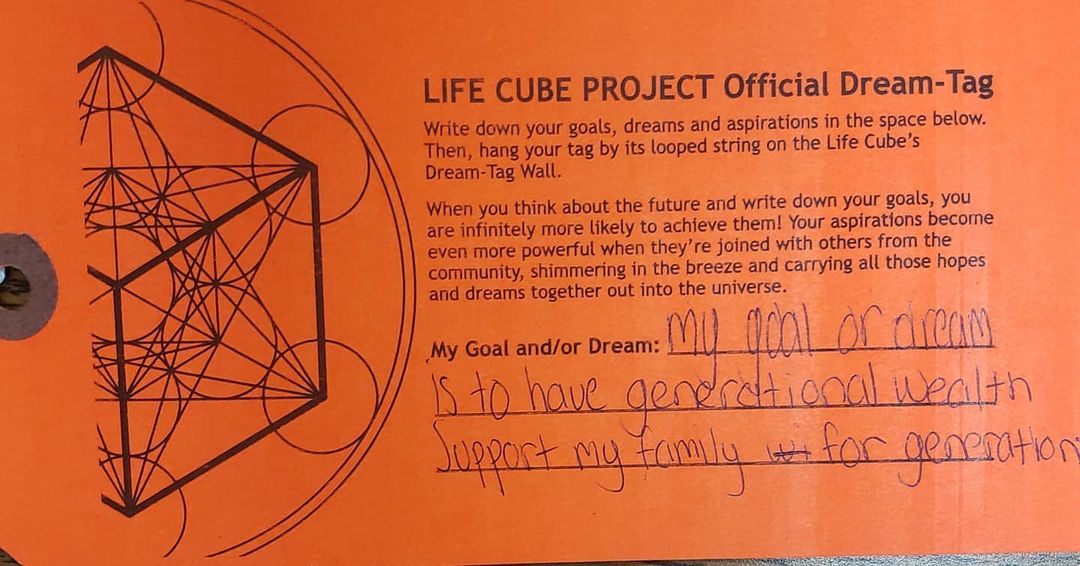 LIFE CUBE PROJECT Official Dream-Tag
Write down your goals, dreams and aspirations in the space below.
Then, hang your tag by its looped string on the Life Cube's
Dream-Tag Wall.
When you think about the future and write down your goals, you
are infinitely more likely to achieve them! Your aspirations become
even more powerful when they're joined with others from the
community, shimmering in the breeze and carrying all those hopes
and dreams together out into the universe.
My Goal and/or Dream: My goal or dream
is to have generational wealth
Support my family for generation